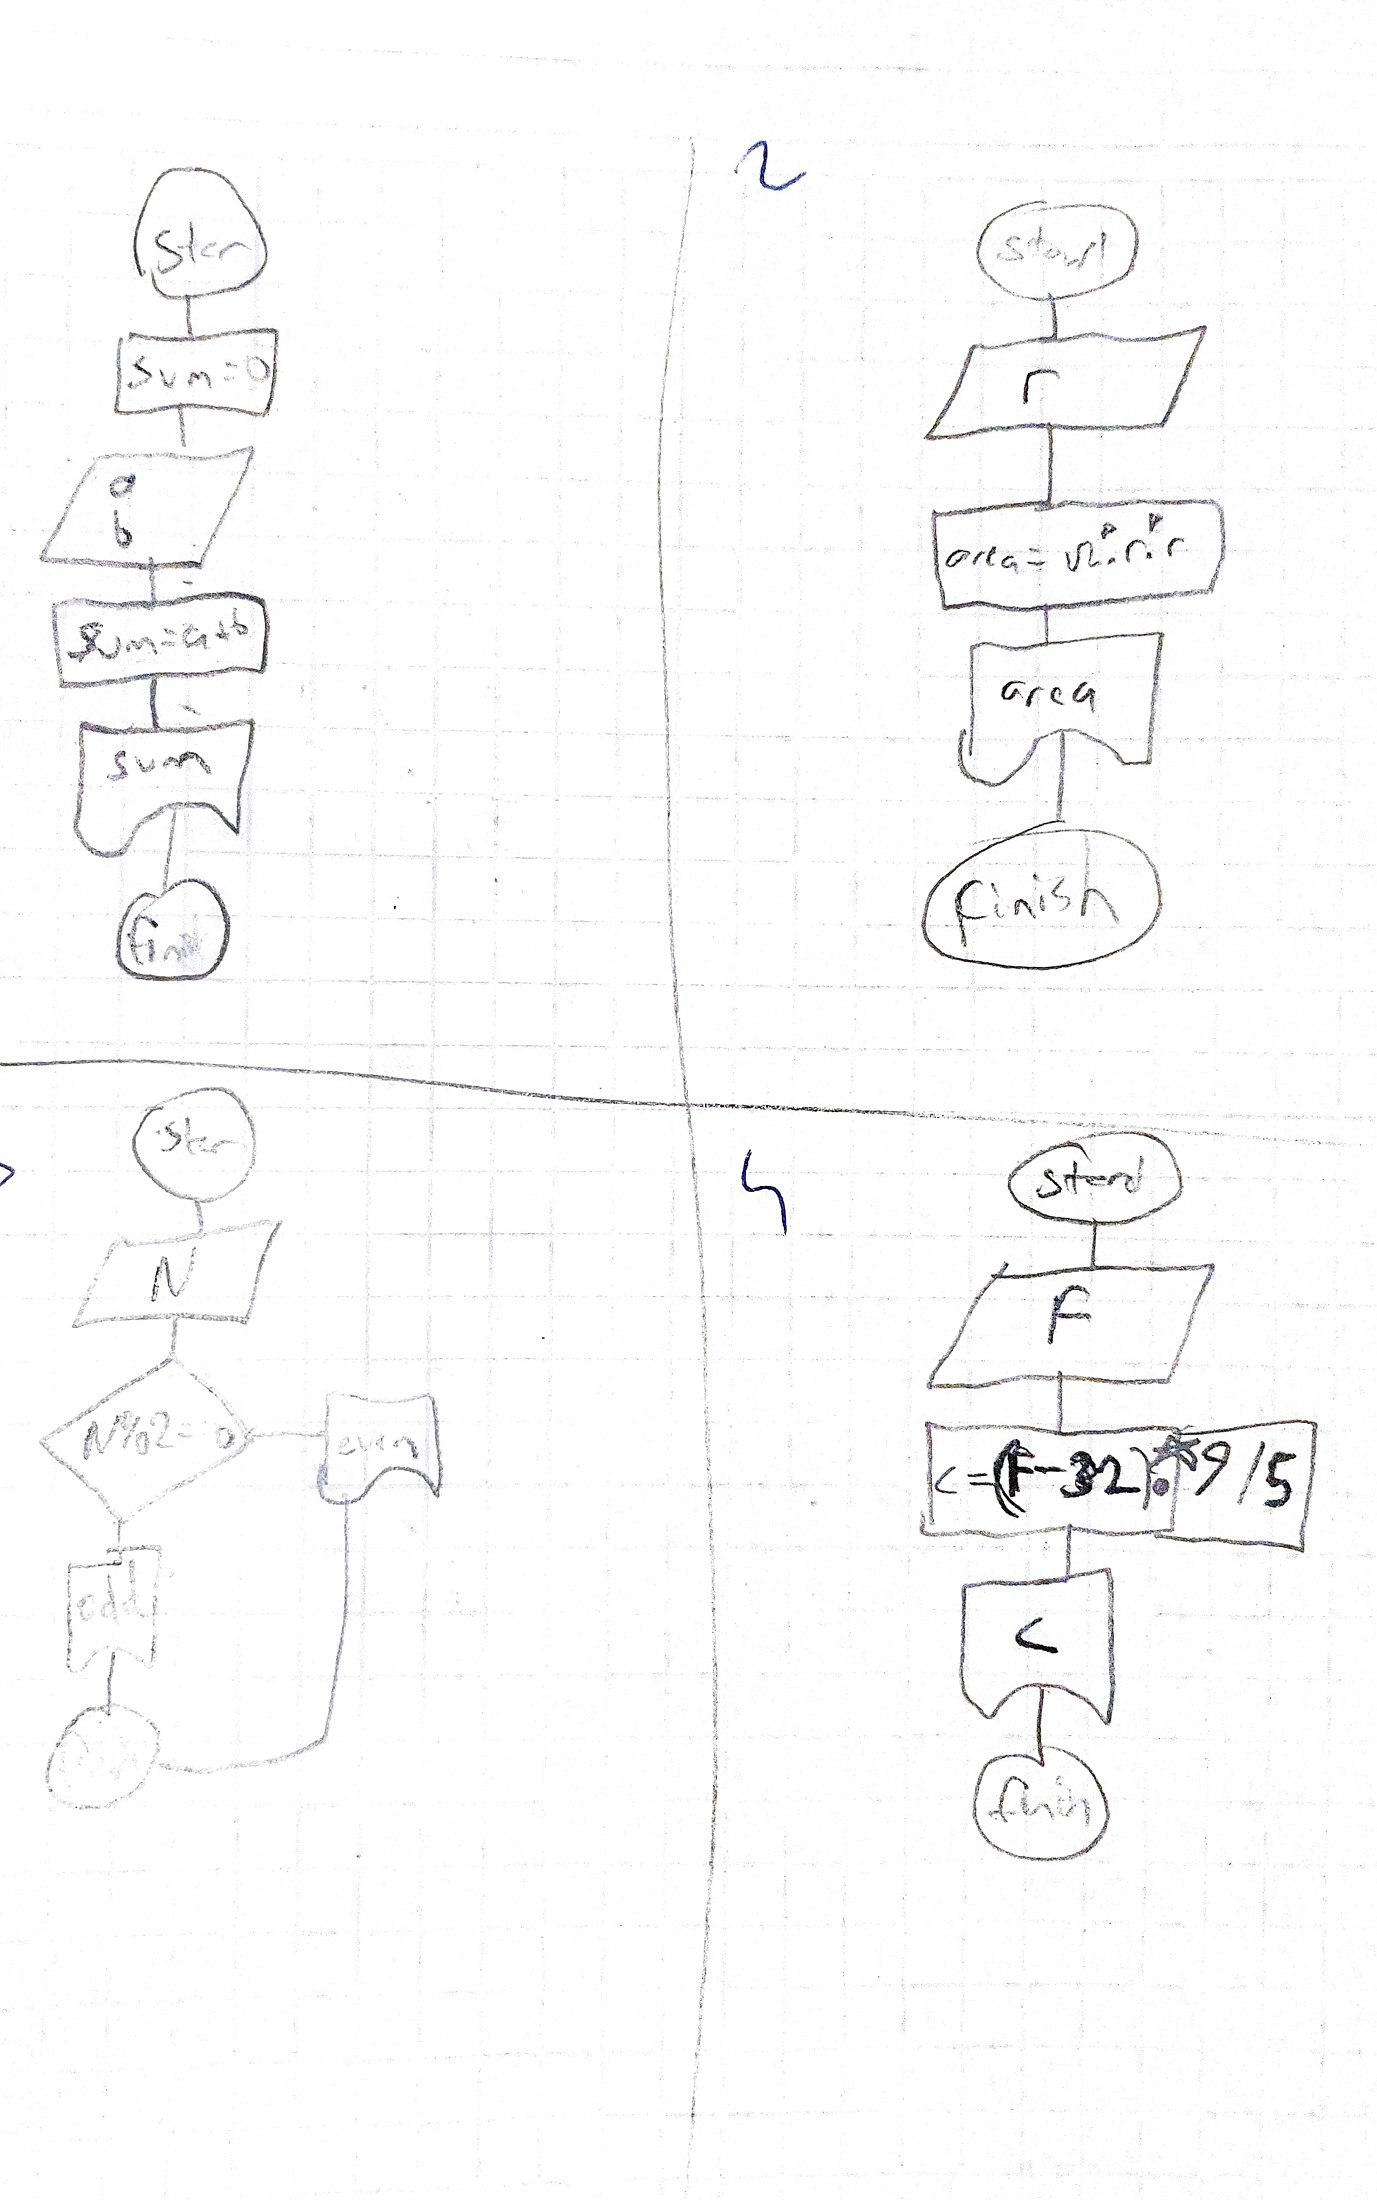 Star
sum=0
a
b
sum=a+b
sum
finish
2
start
r
area= π*r*r
area
finish
Star
N
N%2=0
even
odd
4
start
F
c=(F-32)*9/5
c
finish